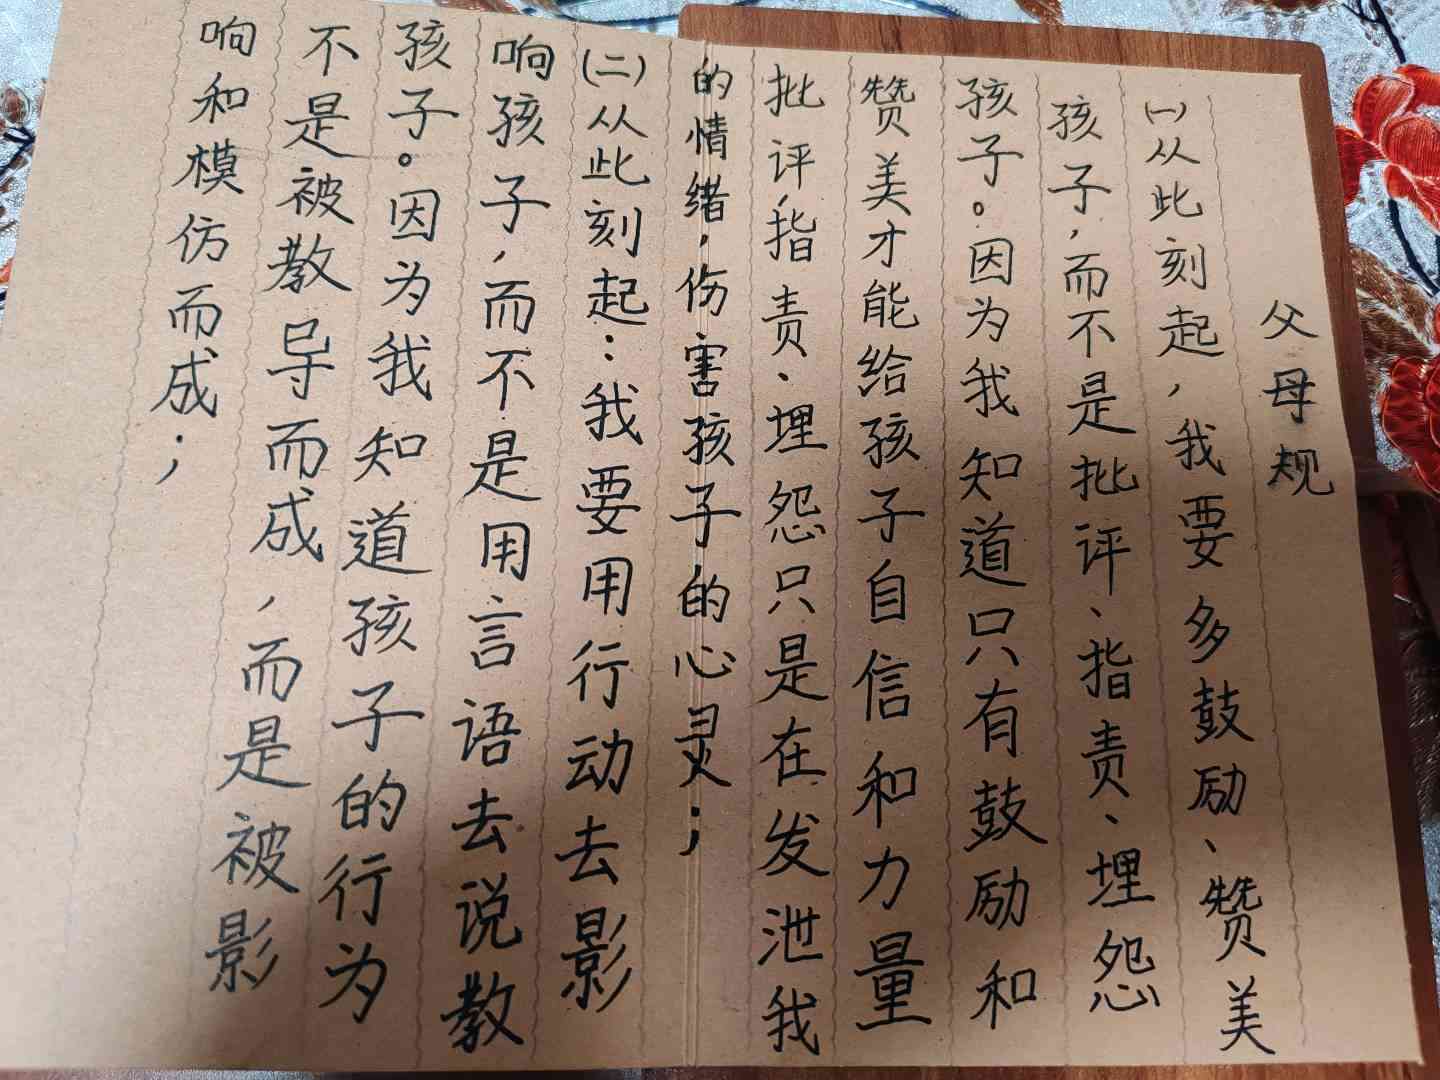 父母规
(一)从此刻起，我要多鼓励、赞美
孩子，而不是批评、指责、埋怨
孩子。因为我知道只有鼓励和
赞美才能给孩子自信和力量
批评，指责、埋怨只是在发泄我
的情绪，伤害孩子的心灵；
(二)从此刻起：我要用行动去影
响孩子，而不是用言语去说教
孩子。因为我知道孩子的行为
不是被教导而成，而是被影
响和模仿而成；